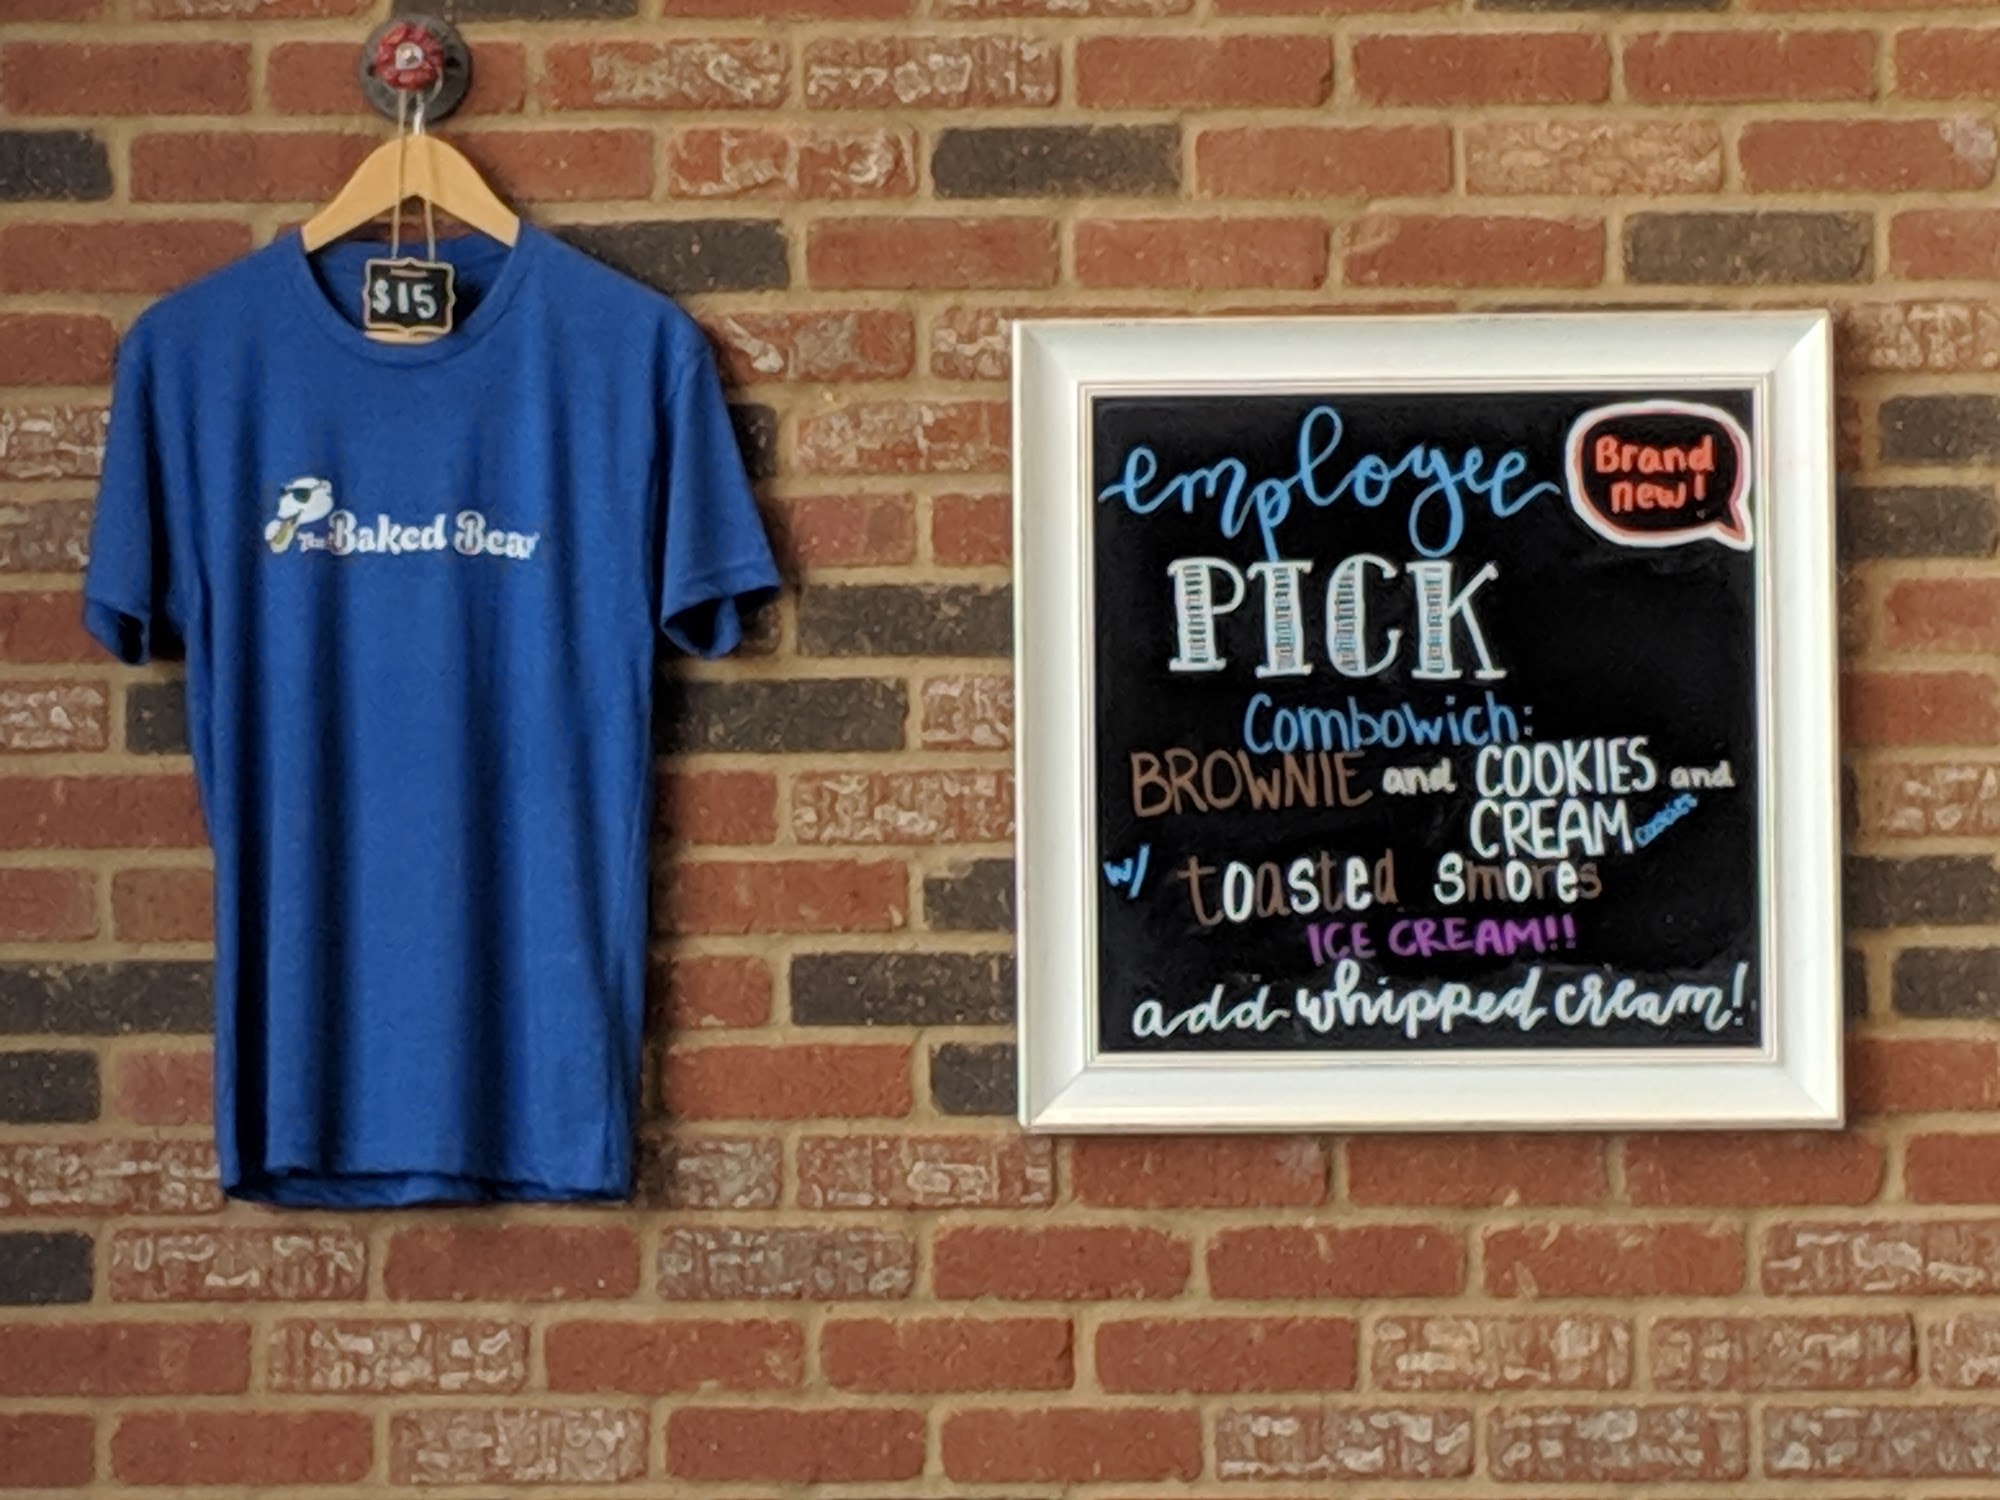 $15
The Baked Bear
employee
Brand
new!
PICK
Combowich:
BROWNIE and COOKIES and
CREAM cookies
w/ toasted smores
ICE CREAM!!
add whipped cream!